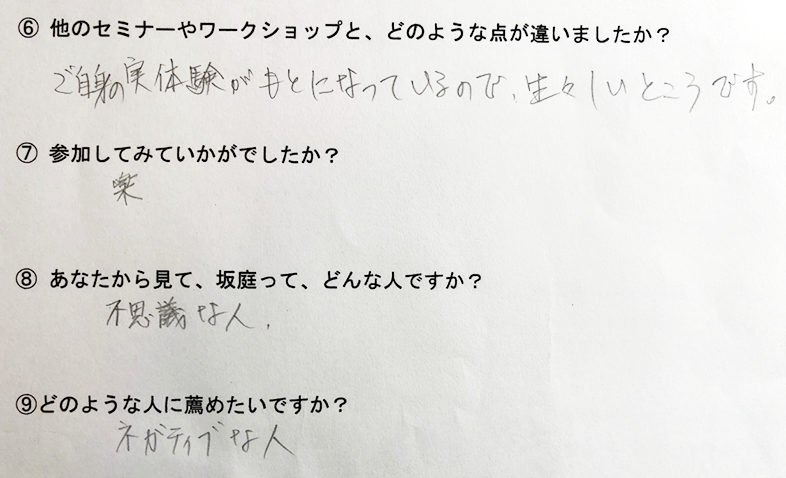 ⑥ 他のセミナーやワークショップと、どのような点が違いましたか？
ご自身の実体験がもとになっているので、生々しいところです。
⑦ 参加してみていかがでしたか？
楽
⑧ あなたから見て、坂庭って、どんな人ですか？
不思議な人.
⑨どのような人に薦めたいですか？
ネガティブな人